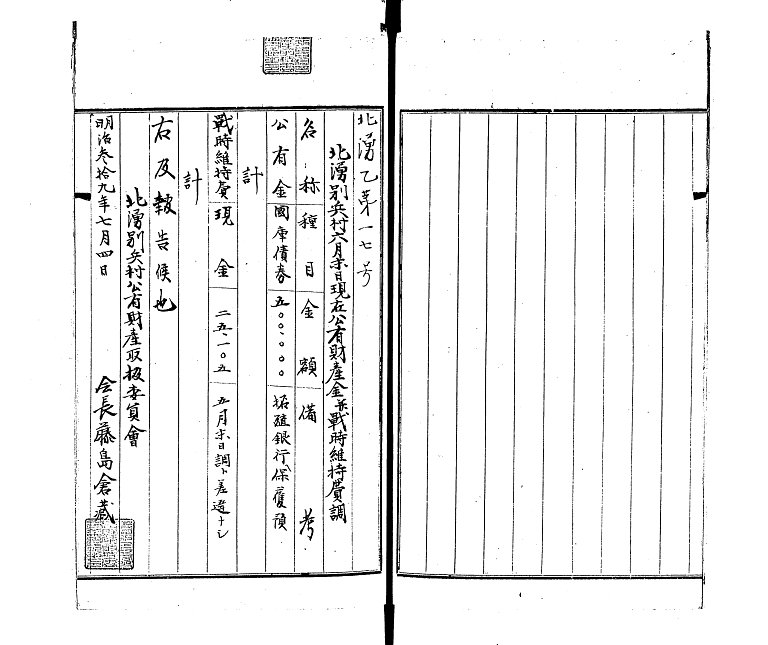 北湧乙第一七号
北湧別兵村六月末日現在公有財産金并戰時維持費調
名称 種目 金額 備考
公有金 國庫債券 五〇〇、〇〇〇 拓殖銀行ヘ保護預
計
戰時維持費 現金 二五、一〇五 五月末日調ト差違ナシ
計
右及報告候也
北湧別兵村公有財産取扱委員會
明治参拾九年七月四日 会長藤島倉藏